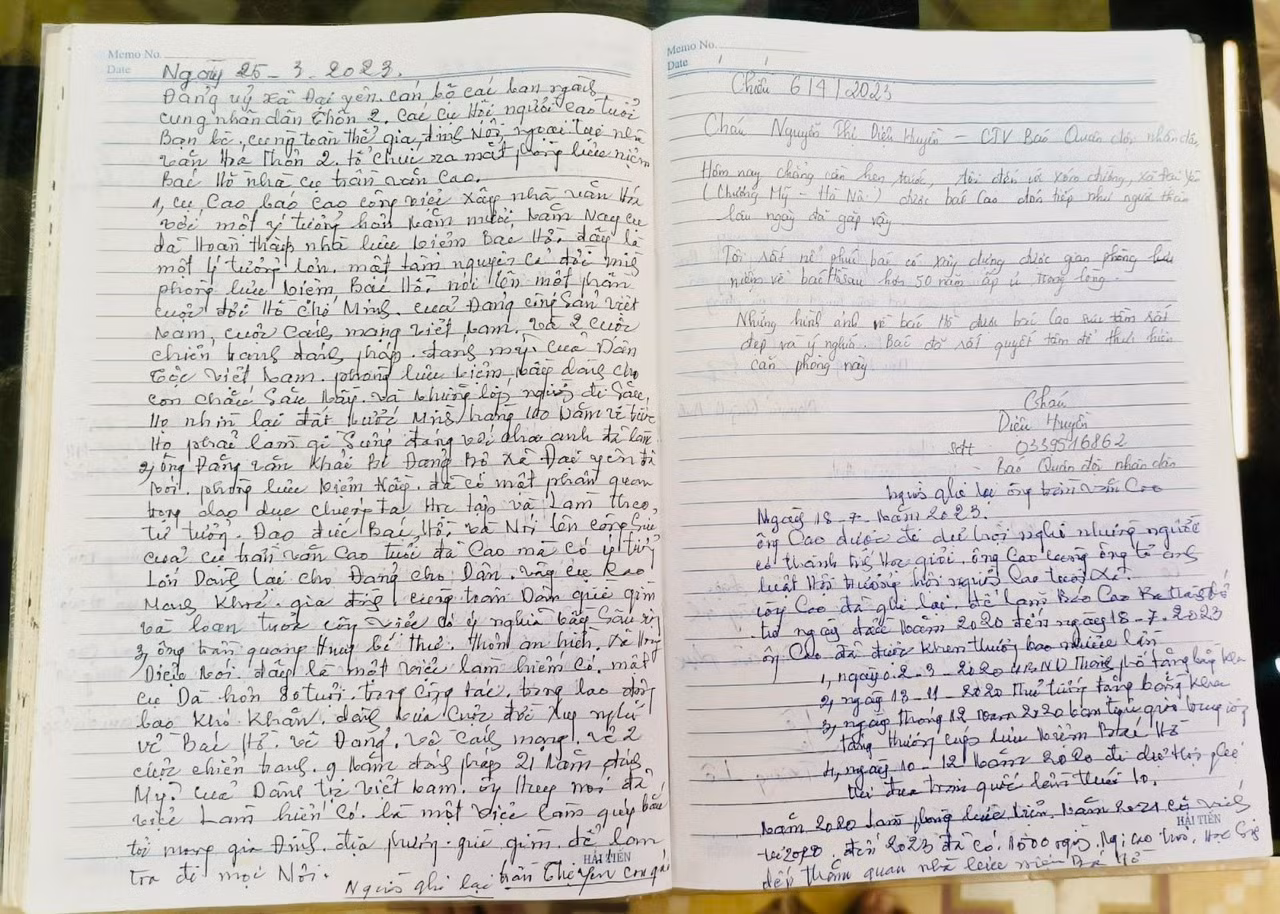 Memo No.
Date
Ngày 25-3-2023.
Đảng uỷ xã Đại yên. cán bộ các ban ngành
cùng nhân dân thôn 2. các cụ Hội người cao tuổi
Bạn bè, cùng toàn thể gia đình Nội, ngoại tại nhà
văn Hoá Thôn 2. tổ chức ra mắt phòng lưu niệm
Bác Hồ nhà cụ trần văn Cao.
1, cụ Cao báo cáo công việc xây nhà văn Hoá
với một ý tưởng hơn Năm mươi Năm Nay cụ
đã Hoàn thành nhà lưu niệm Bác Hồ. đây là
một lý tưởng lớn. một tâm nguyện cả đời mình
phòng lưu niệm Bác Hồ, nói lên một phần
cuộc đời Hồ chí Minh. của Đảng cộng Sản việt
Nam, cuộc cách mạng việt Nam. và 2 cuộc
chiến tranh đánh pháp. đánh mỹ của Dân
tộc việt Nam. phòng lưu niệm này dành cho
con cháu Sau Này. và những lớp người đi Sau,
Họ nhìn lại đất Nước Mình hàng 100 Năm về trước
Họ phải làm gì Sứng đáng với cha anh đã làm
2, ông Đặng văn Khải Bí Đảng Bộ xã Đại yên đã
Nói. phòng lưu niệm Này. đã có một phần quan
trọng giáo dục chúng ta Học tập và Làm theo,
tư tưởng. Đạo đức Bác Hồ. và Nói lên công Sức
của cụ trần văn Cao tuổi đã Cao mà có ý tưởng
Lớn Dành lại cho Đảng cho Dân.
Mạnh Khoẻ. gia đình, cùng toàn Dân giữ gìn
và loan truyền việc có ý nghĩa
3, ông trần quang Huy bí thư. Thôn an hiền. xã Hoàng
Diệu Nói. đây là một việc làm hiếm có. một
cụ Đã hơn 80 tuổi. trong công tác. trong lao động
bao khó khăn. của Cuộc đời suy nghĩ
về Bác Hồ. về Đảng. về cách mạng, về 2
cuộc chiến tranh. 9 Năm đánh pháp 21 Năm đánh
Mỹ. của Dân tộc việt Nam. ông Huy nói đã
việc Làm hiếm có. là một việc Làm quý báu
tôi mong gia Đình. địa phương. giữ gìn. để lan
toả đi mọi Nơi.
HẢI TIẾN
Người ghi lại trần Thị yến con gái
Memo No.
Date
Chiều 6/4/2023
Cháu Nguyễn Thị Diệu Huyền – CTV Báo Quân đội nhân dân,
Hôm nay chẳng cần hẹn trước, tôi đến với xóm chiềng, xã Đại Yên
(Chương Mỹ - Hà Nội) được bác Cao đón tiếp như người thân
lâu ngày đã gặp vậy
Tôi rất nể phục bác có xây dựng được gian phòng lưu
niệm về bác Hồ sau hơn 50 năm ấp ủ trong lòng.
Những hình ảnh về bác Hồ được bác Cao sưu tầm rất
đẹp và ý nghĩa. Bác đã rất quyết tâm để thực hiện
căn phòng này
Cháu
Diệu Huyền
sđt 0339516862
- Báo Quân đội nhân dân
người ghi lại ông trần văn Cao
Ngày 18-7-Năm 2023.
ông Cao được đi dự hội nghị những người
có thành tích Học giỏi. ông Cao cùng ông
luật Hội trưởng hội người Cao tuổi xã.
ông Cao đã ghi lại. để làm Báo Cáo
từ ngày đầu Năm 2020 đến ngày 18-7-2023
ông Cao đã được khen thưởng bao nhiêu lần
1, ngày 02-3-2020 UBND Thành phố tặng bằng khen
2, ngày 13-11-2020 Thủ tướng tặng bằng khen
3, ngày tháng 12 năm 2020 ban trung ương
tặng thưởng lưu niệm Bác Hồ
4, ngày 10-12 Năm 2020 đi dự Hội nghị
thi đua toàn quốc lần thứ 10.
Năm 2020 Làm phòng lưu niệm, Năm 2021
đến 2023 đã có 1000 người.
HẢI TIẾN
đến thăm quan nhà lưu niệm Bác Hồ